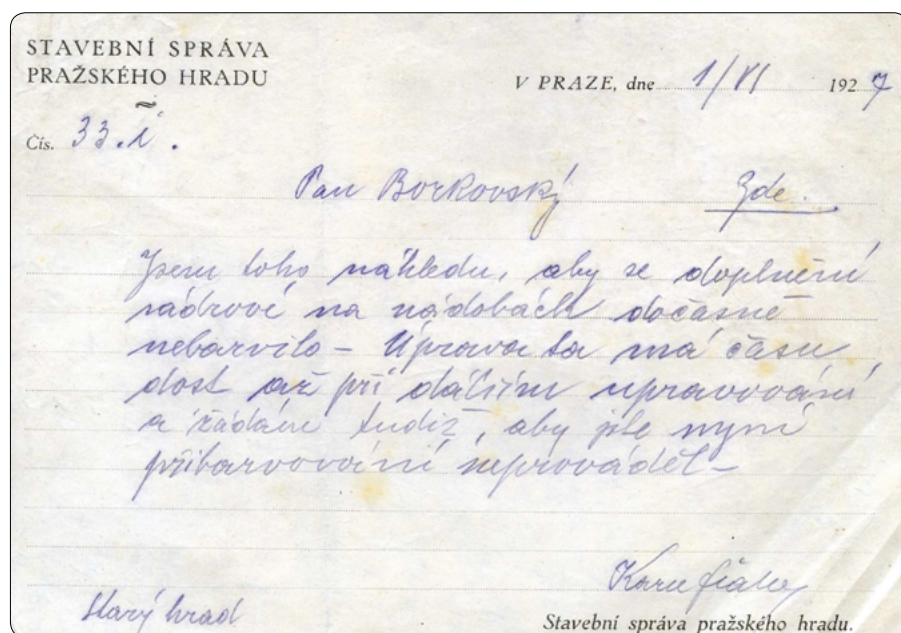 STAVEBNÍ SPRÁVA
PRAŽSKÉHO HRADU
V PRAZE, dne 1/VI 1927
Čís. 33.
Pan Borkovský Zde.
Jsem toho náhledu, aby se doplnění
sádrové na nádobách dočasně
nebarvilo – Úprava ta má času
dost až při dalším upravování
a žádám tudíž, aby jste nyní
přibarvování neprováděl –
Karel Fiala
Starý hrad
Stavební správa pražského hradu.